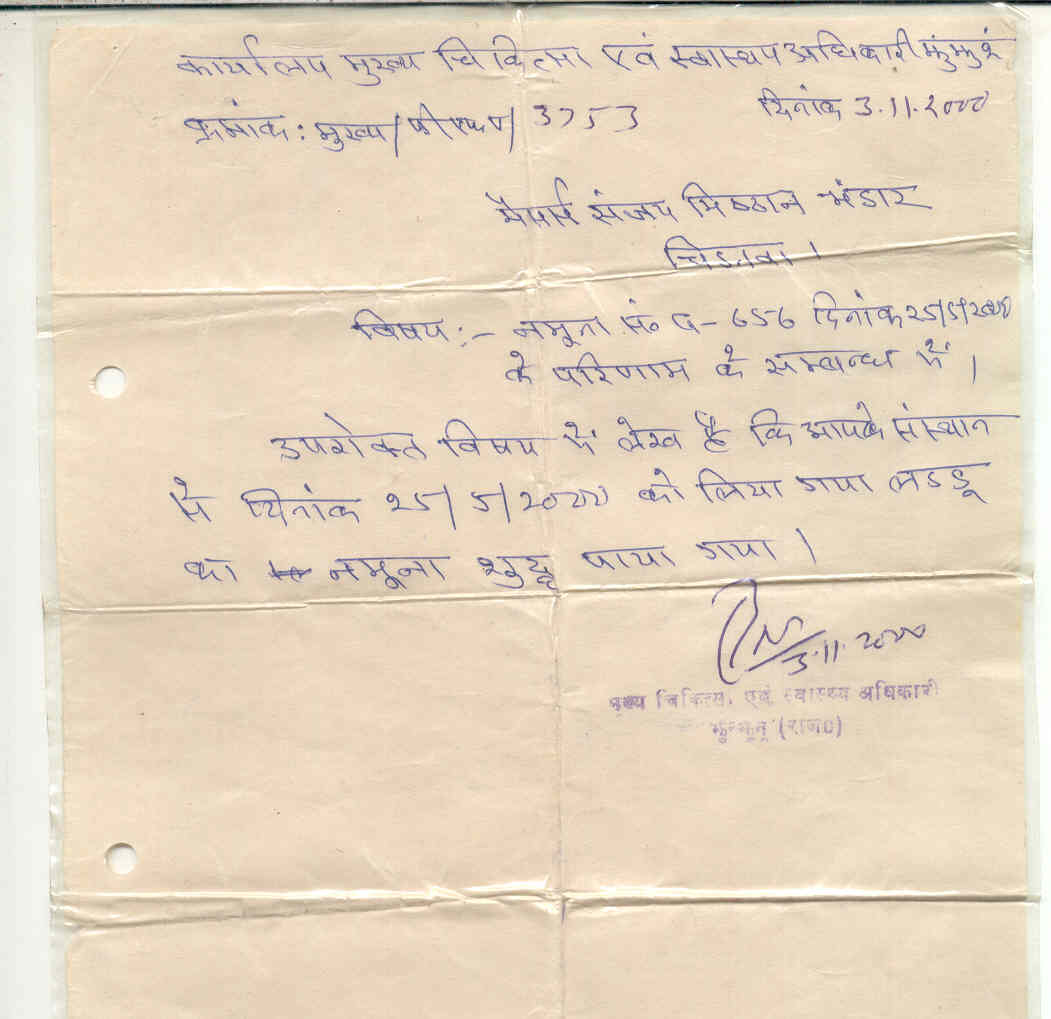 कार्यालय मुख्य चिकित्सा एवं स्वास्थ्य अधिकारी झुंझुनूं
क्रमांक: मुख्य/पीएफए/3753 दिनांक 3.11.2000
मैसर्स संजय मिष्ठान भंडार
चिडावा।
विषय:- नमूना सं० द-656 दिनांक 25/5/2000
के परिणाम के सम्बन्ध में।
उपरोक्त विषय में लेख है कि आपके संस्थान
से दिनांक 25/5/2000 को लिया गया लडडू
का नमूना शुद्ध पाया गया।
3.11.2000
मुख्य चिकित्सा एवं स्वास्थ्य अधिकारी
झुन्झुनू (राज०)